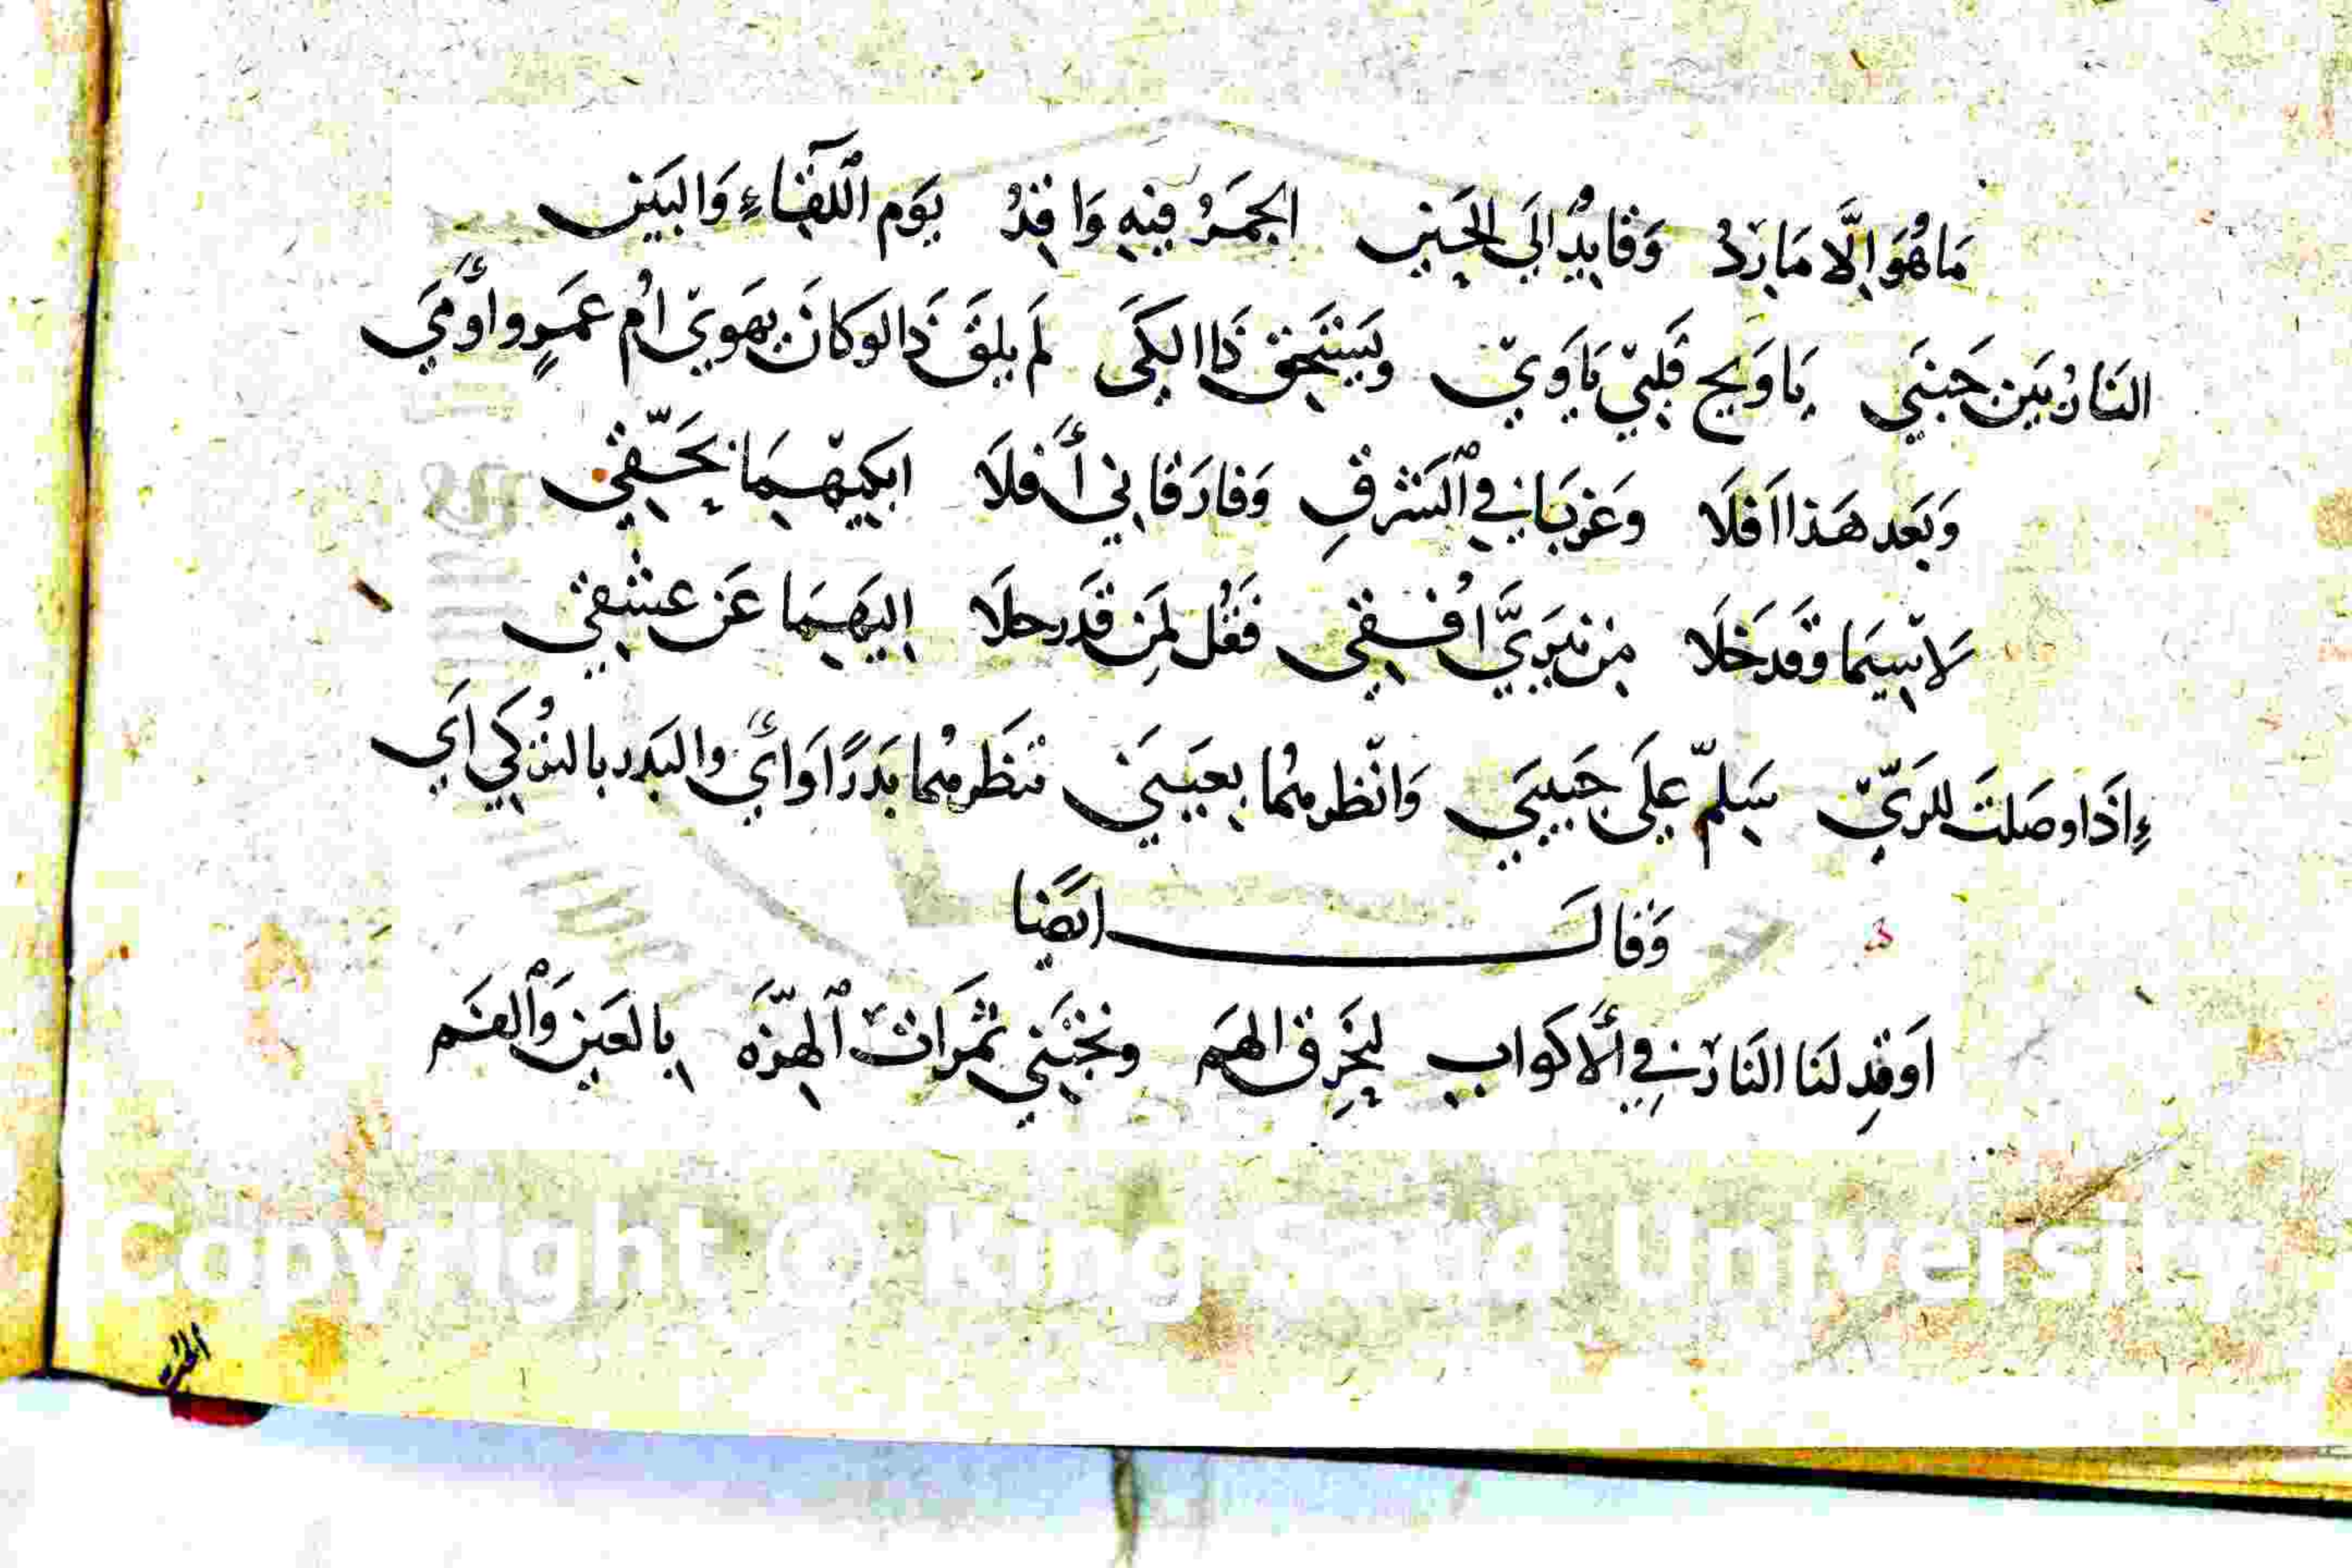 مَا هُوَ اِلَّا مَارِدُ وَقَايِدُ اِلَى الحَينِ الجمَرُ فِيهِ وَاقِدُ يَوَم اللِّقَاءِ وَالبَينِ
النَارُ بَين جَنبَي يَا وَيح قَلبِي يَاوَيّ وَيَستَحِق ذَا الكَي لَم يلقَ ذَا لوكانَ يهَويّ اُم عَمَرٍو اَومَي
وَبَعد هَذا اَفلَا وغرَبَاني في اَلشَرقِ وَفارَقَاني أَفلَا ابكيهِمَا بحَقّي
لَاسِيَمَا وَقد خَلَا مِن نيَريَّ اُفقِي فَقُل لِمَن قَد رحلَا اِليَهِمَا عَن عشقِي
إِذَا وصَلتَ للرَيّ سَلِمّ علَى حَبيبَي وَانظر منُما بِعيَنيَي تنظَر منُما بَدَرًا وَاَي والبَدر بالتُركي اَي
وَقالَ ايَضًا
اَوقِد لنَا النَارَ في اَلاكوابِ ليَحِرق الهَم ونَجتَني ثمَرَات اَلهِزّه بِالعَين وَاَلفَم
Copyright © King Saud University